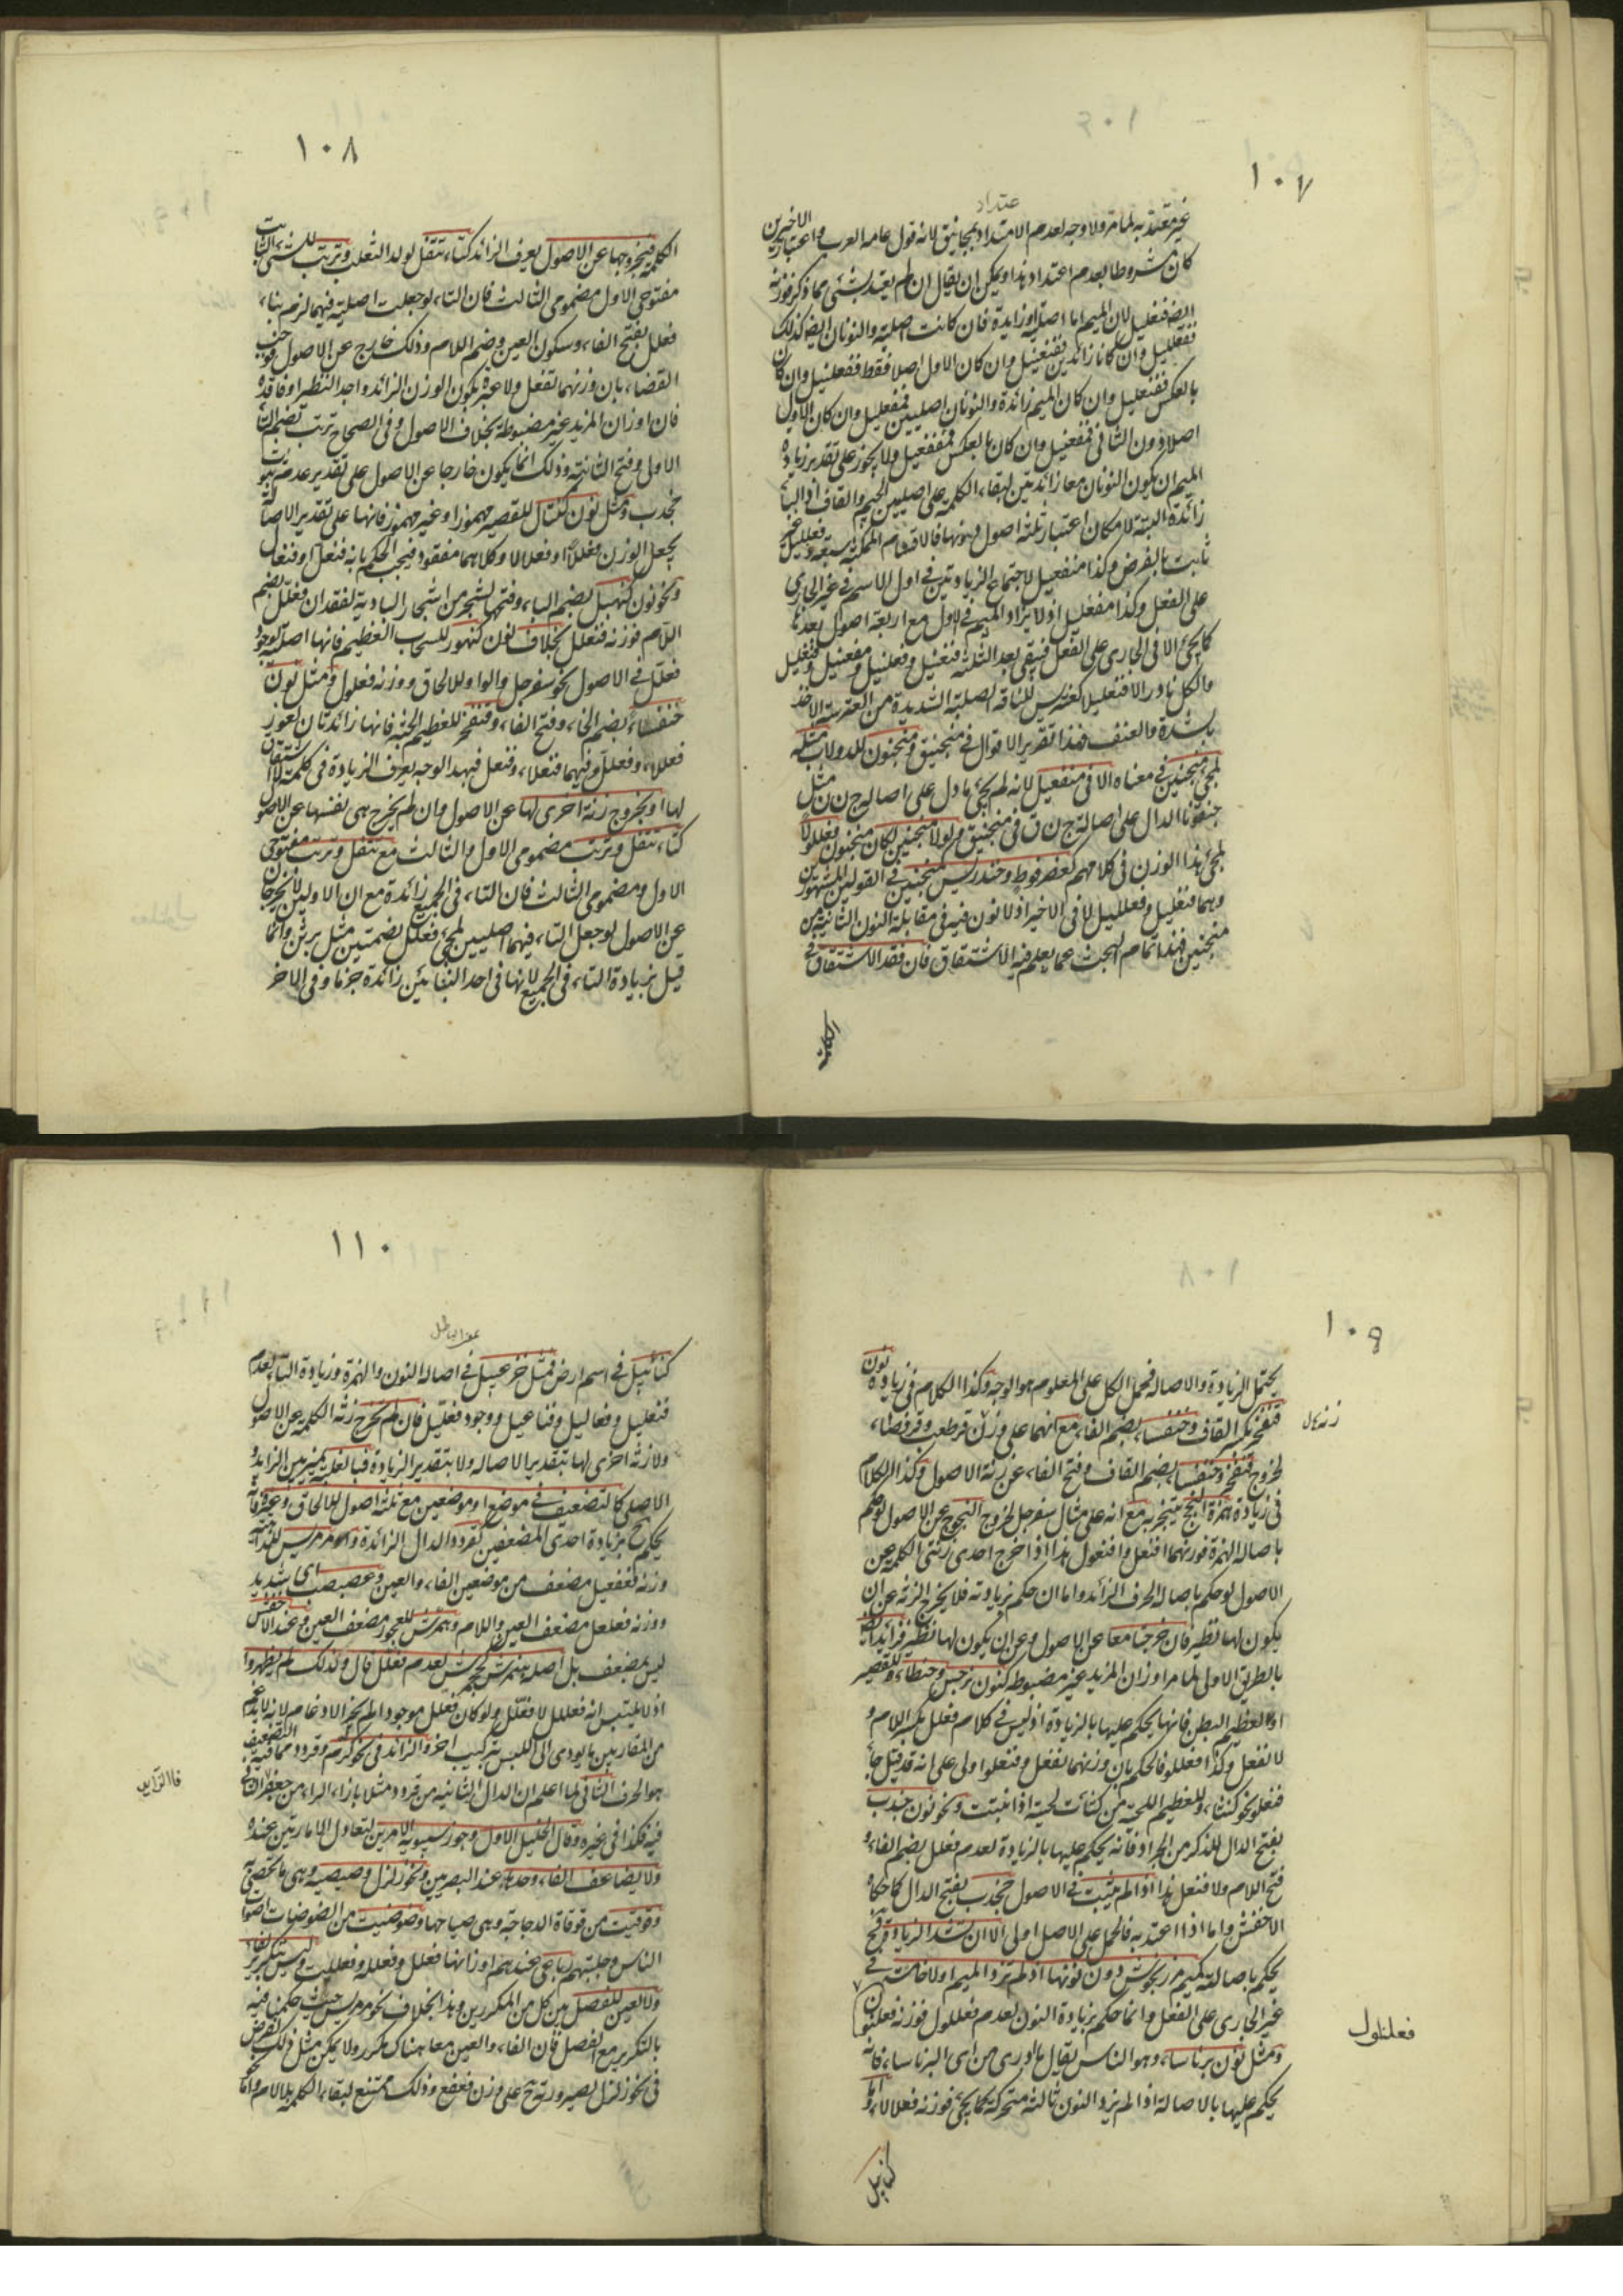 ١٠٧
عتداد
غير معتد به لما مر ولا وجه لعدم الاعتداد بمجانيق لانه قول عامة العرب واعتبار الاخيرين
كان مشروطا بعدم اعتداد هذا ويمكن ان يقال ان لم يعتد بشئ مما ذكر فوزنه
ايضا فنعليل لان الميم اما اصلية او زايدة فان كانت اصلية والنونان ايضا كذلك
ففعلليل وان كانا زائدين ففنعنيل وان كان الاول اصلا فقط ففعلنيل وان كان
بالعكس ففنعليل وان كان الميم زائدة والنونان اصليين فمفعليل وان كان الاول
اصلا دون الثانى فمفعنيل وان كان بالعكس فمنفعيل ولا يجوز على تقدير زيادة
الميم ان يكون النونان معا زائدتين لبقاء الكلمة على اصليين الجيم والقاف اذ الياء
زائدة البتة لامكان اعتبار ثلثة اصول دونها فالاقسام الممكنة سبعة وفعلليل غير
ثابت بالفرض وكذا منفعيل لاجتماع الزيادتين فى اول الاسم فى غير الجارى
على الفعل وكذا مفعليل اذ لا يزاد الميم فى الاول مع اربعة اصول بعدها
كما يجئ الا فى الجارى على الفعل فبقى بعد الثلثة فنعنيل وفعلنيل ومفعنيل وفنعليل
والكل نادر الا فنعليلا كعنتريس للناقة الصلبة الشديدة من العترسة الاخذ
بالشدة والعنف فهذا تقدير الاقوال فى منجنيق ومنجنون للدولاب مثله
لمجئ منجنين فى معناه الا فى منفعيل لانه لم يجئ ما دل على اصالة ج ن ن مثل
جنقونا الدال على اصالة ج ن ق فى منجنيق ولولا منجنين لكان منجنون فعللولا
لمجئ هذا الوزن فى كلامهم كعضرفوط وخندريس كمنجنين فى القولين المشهورين
وهما فنعليل وفعلليل لا فى الاخير اذ لا نون فيه فى مقابلة النون الثانية من
منجنين فهذا تمام البحث عما يعلم فيه الاشتقاق فان فقد الاشتقاق فى
الكلمة
١٠٨
الكلمة فبخروجها عن الاصول يعرف الزائد كتاء تتفل لولد الثعلب وترتب للشئ الثابت
مفتوحى الاول مضمومى الثالث فان التاء لو جعلت اصلية فيهما لزم بناء
فعلل بفتح الفاء وسكون العين وضم اللام وذلك خارج عن الاصول فوجب
القضاء بان وزنهما تفعل ولا عبرة بكون الوزن الزائد واجد النظير او فاقده
فان اوزان المزيد غير مضبوطة بخلاف الاصول وفى الصحاح ترتب بضم التاء
الاولى وفتح الثانية وذلك انما يكون خارجا عن الاصول على تقدير عدم ثبوت
جخدب ومثل نون كنتأل للقصير مهموزا وغير مهموز فانها على تقدير الاصالة
يجعل الوزن فعللا او فعلالا وكلاهما مفقود فيجب الحكم بانه فنعل او فنعال
ونحو نون كنهبل بضم الباء وفتحها لشجر من اشجار البادية لفقدان فعلل بضم
اللام فوزنه فنعلل بخلاف نون كنهور للسحاب العظيم فانها اصلية لوجود
فعلل فى الاصول نحو سفرجل والواو للالحاق ووزنه فعلول ومثل نون
خنفساء بضم الخاء وفتح الفاء وقنفخر للعظيم الجثة فانها زائدتان لعوز
فعللاء وفعلل وفيهما فنعلاء وفنعل فبهذا الوجه يعرف الزيادة فى كلمة لا اشتقاق
لها او بخروج زنة اخرى لها عن الاصول وان لم يخرج هى نفسها عن الاصول
كتاء تتفل وترتب مضمومى الاول والثالث مع تتفل وترتب مفتوحى
الاول ومضمومى الثالث فان التاء فى الجميع زائدة مع ان الاولين لا يخرجان
عن الاصول لو جعل التاء فيهما اصليين لمجئ فعلل بضمتين مثل برثن وانما
قيل بزيادة التاء فى الجميع لانها فى احد البنائين زائدة جزما وفى الاخر
١٠٩
يحتمل الزيادة والاصالة فحمل الكل على المعلوم هو الوجه وكذا الكلام فى زيادة نون
قنفخر بكسر القاف وخنفساء بضم الفاء مع انهما على وزن قرطعب وقرفصاء
لخروج قنفخر وخنفساء بضم القاف وفتح الفاء عن زنة الاصول وكذا الكلام
فى زيادة همزة النجج مع انه على مثال سفرجل لخروج النجوج عن الاصول لو حكم
باصالة الهمزة فوزنهما افنعل وافنعول هذا اذا خرج احدى زنتى الكلمة عن
الاصول لو حكم باصالة الحرف الزائد واما ان حكم بزيادته فلا يخرج الزنة عن ان
يكون لها نظير فان خرجتا معا عن الاصول وعن ان يكون لها نظير فزائد ايضا
بالطريق الاولى لما مر اوزان المزيد غير مضبوطة كنون نرجس وحنطأو للقصير
او العظيم البطن فانها يحكم عليها بالزيادة اذ ليس فى كلام فعلل بكسر اللام و
لا نفعل وكذا فعللو فالحكم بان وزنهما نفعل وفنعلو اولى على انه قد قيل جاء
فنعلو نحو كنثأو للعظيم اللحية من كثأت لحيته اذا نبتت ونحو نون جندب
بفتح الدال للذكر من الجراد فانه يحكم عليها بالزيادة لعدم فعلل بضم الفاء و
فتح اللام ولا فنعل هذا اذا لم يثبت فى الاصول جخدب بفتح الدال كما حكاه
الاخفش واما اذا اعتد به فالحمل على الاصل اولى الا ان تشذ الزيادة فح
يحكم باصالته كميم مرزنجوش دون نونها اذ لم تزد الميم اولا خامسة فى
غير الجارى على الفعل وانما حكم بزيادة النون لعدم فعللول فوزنه فعلنلول
ومثل نون برناساء وهو الناس يقال ما ادرى من اى البرناساء فانه
يحكم عليها بالاصالة اذا لم يزد النون ثالثة متحركة كما يجئ فوزنه فعلالاء واما
فعلنلول
كنابيل
١١٠
كنابيل فى اسم ارض فمثل خزعبيل فى اصالة النون والهمزة وزيادة الياء لعدم
فنعليل وفعاليل وفناعيل ووجود فعلليل فان لم يخرج زنة الكلمة عن الاصول
ولا زنة اخرى لها بتقدير الاصالة ولا بتقدير الزيادة فبالغلبة يميز بين الزائد و
الاصلى كالتضعيف فى موضع او موضعين مع ثلثة اصول للالحاق وغيره فانه
يحكم ح بزيادة احدى المضعفين كقردد الدال الزائدة ومرمريس للداهية
وزنه فعفعيل مضعف من موضعين الفاء والعين وعصبصب اى شديد
ووزنه فعلعل مضعف العين واللام وهمرش للعجوز مضعف العين وعند الاخفش
ليس بمضعف بل اصله هنمرش كجحمرش لعدم فعلل قال وكذلك لم يظهروا
اذ لا يلتبس انه فعللل لا فعلل ولو كان فعلل موجودا لم يجز الادغام لانه لا يدغم
من المقاربين ما يودى الى اللبس بتركيب اخر والزائد فى نحو كرم وقردد مما فيه التضعيف
هو الحرف الثانى لما اعلم ان الدال الثانية من قردد مثلا بازاء الراء من جعفر
فيه فكذا فى غيره وقال الخليل الاول وجوز سيبويه الامرين لتعادل الامارتين عنده
ولا يضاعف الفاء وحدها عند البصرين ونحو زلزل وصيصية وهى ما تحصن به
وقوقيت من قوقاة الدجاجة وهى صياحها وضوضيت من الضوضاة اصوات
الناس وجلبتهم رباعى عندهم اوزانها فعلل وفعللة وفعلليت وليس بتكرير لفاء
ولا لعين للفصل بين كل من المكررين وهذا بخلاف نحو مرمريس حيث حكمنا فيه
بالتكرير مع الفصل فان الفاء والعين معا هناك مكرر ولا يمكن مثل ذلك الفرض
فى نحو زلزل لصيرورته ح على وزن فعفع وذلك ممتنع لبقاء الكلمة بلا لام وانما